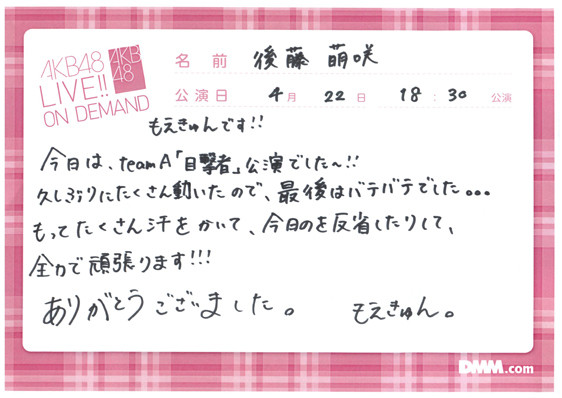 AKB48
LIVE!!
ON DEMAND
AKB
48
名前 後藤 萌咲
公演日 4月 22日 18:30 公演
もえきゅんです!!
今日は、teamA「目撃者」公演でした〜!!
久しぶりにたくさん動いたので、最後はバテバテでした...
もってたくさん汗をかいて、今日のを反省したりして、
全力で頑張ります!!!
ありがとうございました。 もえきゅん。
DMM.com